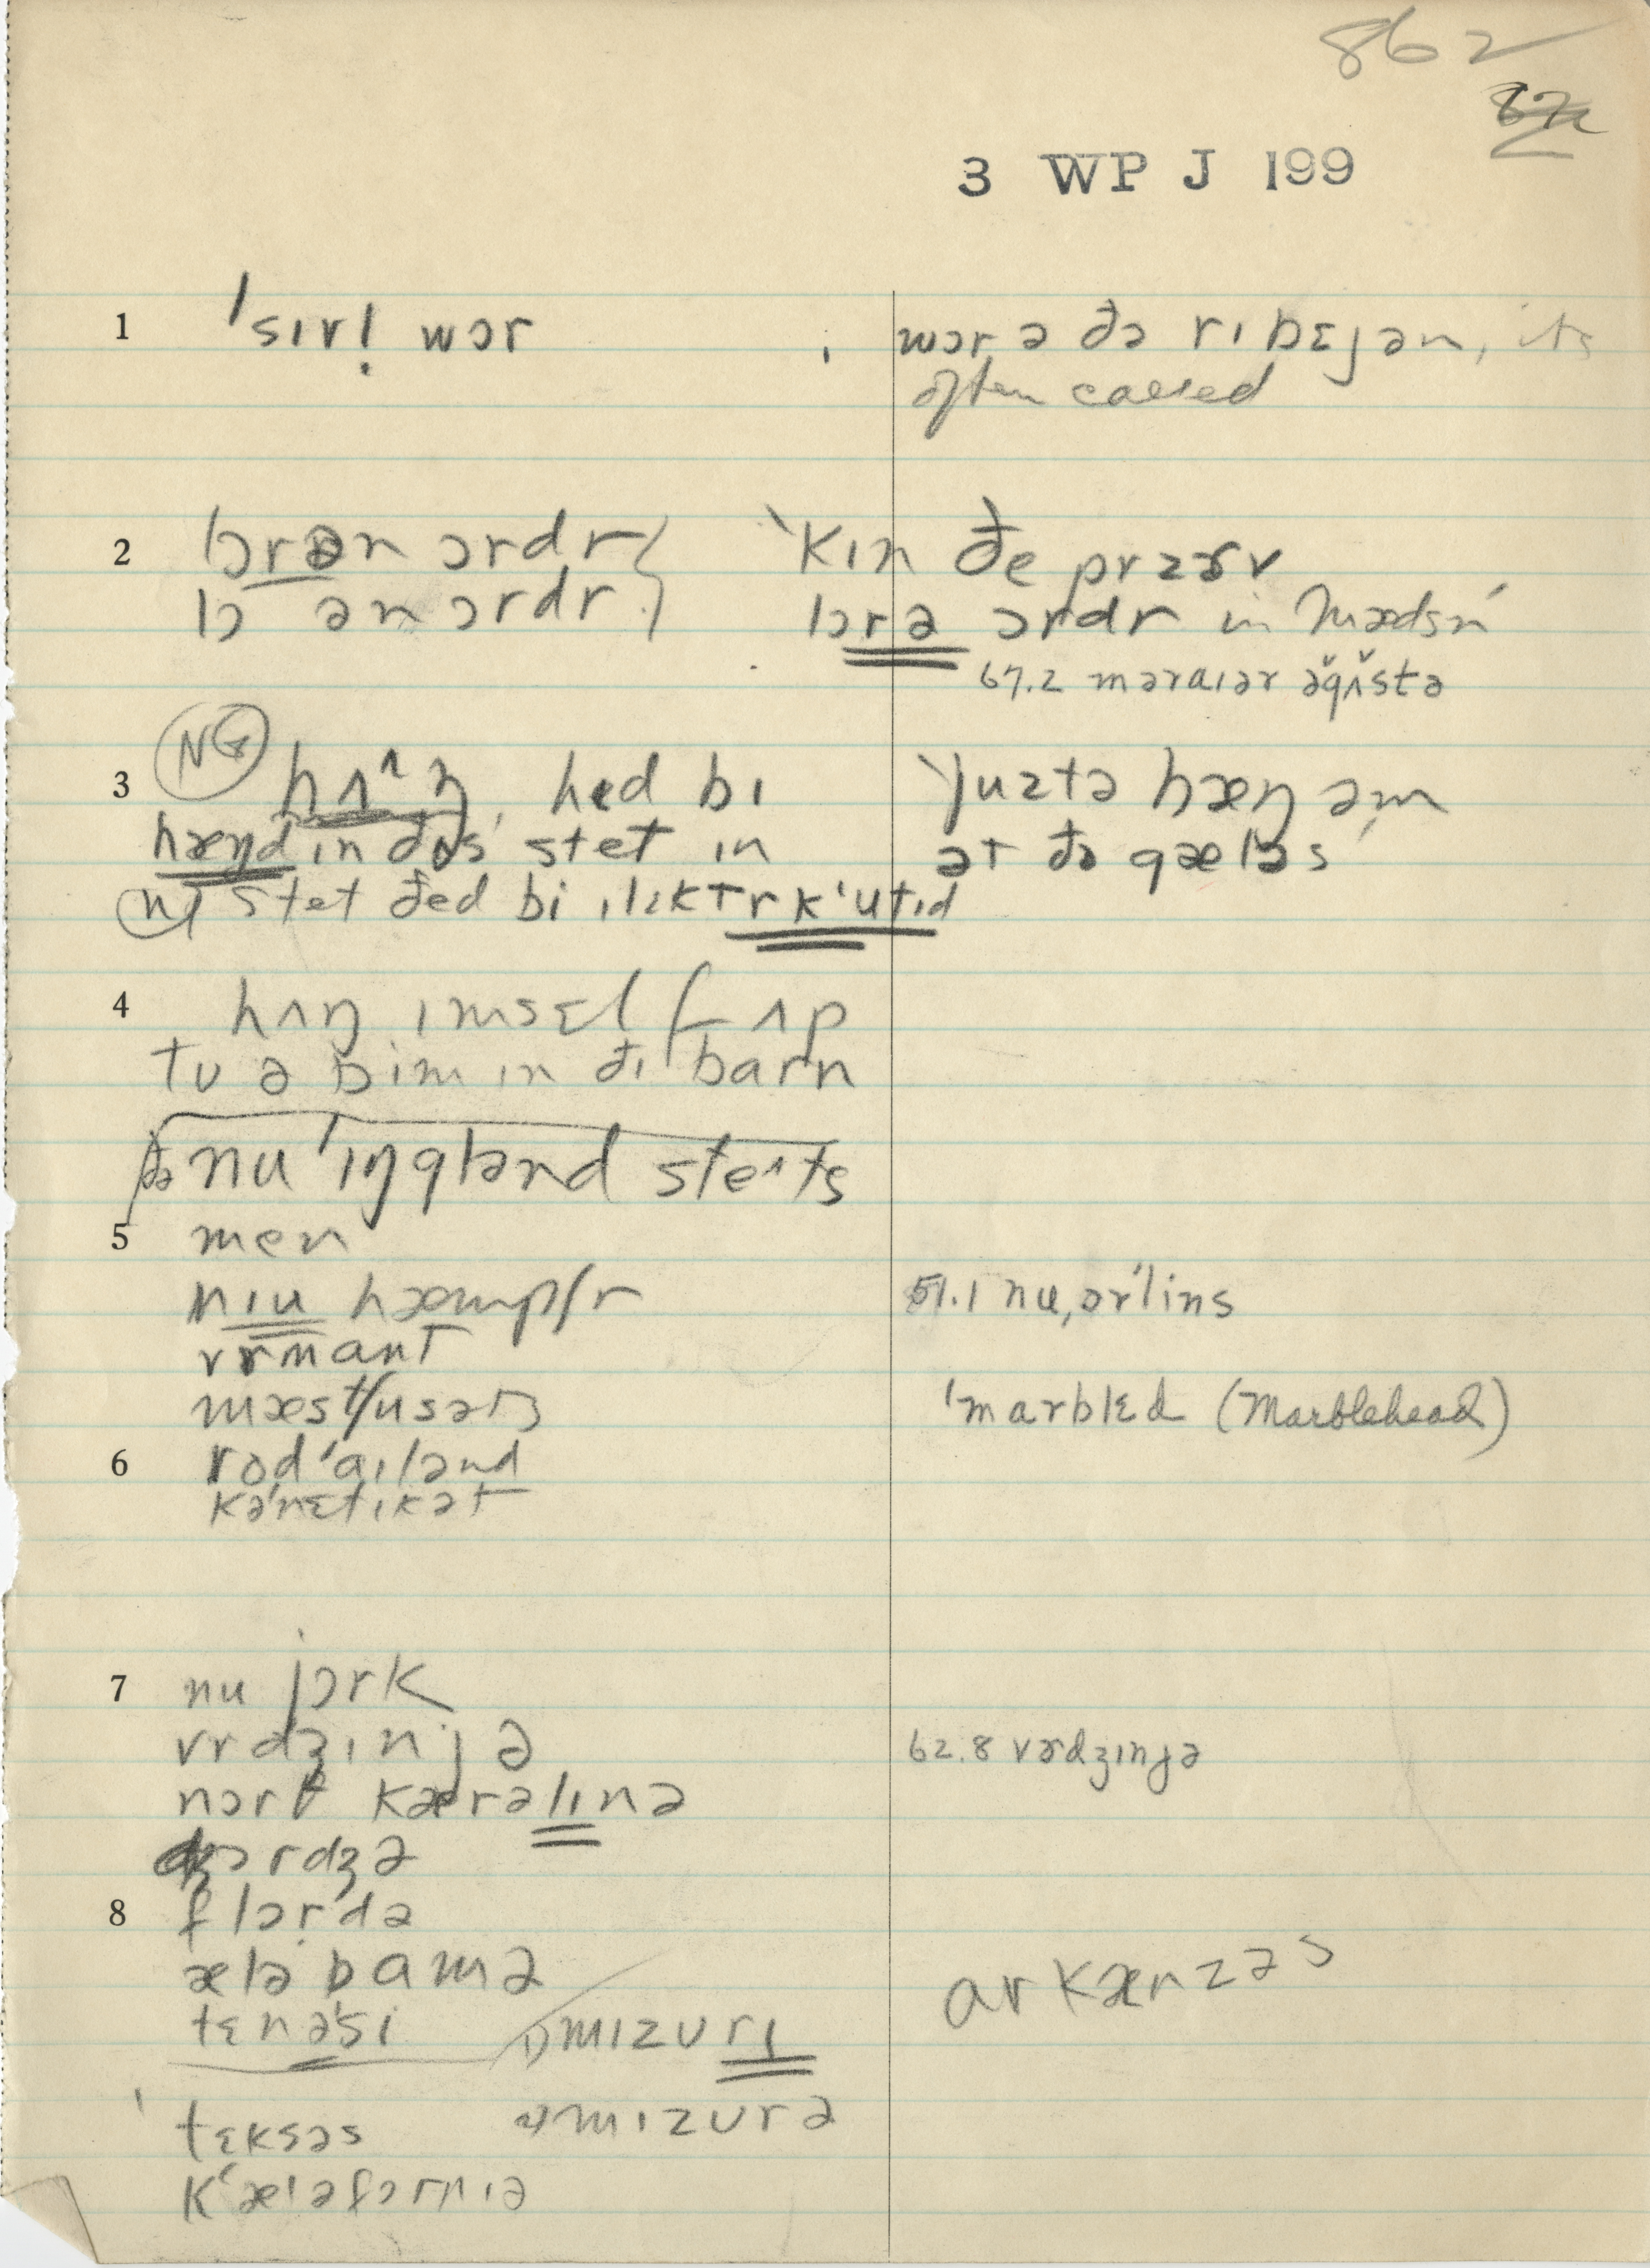 862
3 WP J 199
1 ˈsɪvḷ wɔr
wɔr ə ðə rɪbɛjən, its
often called
2 lɔrən ɔrdr
lɔ ən ɔrdr
ˋkɪn ðe prəzɚv
lɔrə ɔrdr in mædsn̍
67.2 məraɪər əgʌstə
3 NG hʌ^ŋ, hed bɪ
hæŋd ɪn ðɪs stet ɪn
stet ðed bi ɪlɛktrkˈutɪd
ˋjuztə hæŋ əm
ət ðə gæləs
4 hʌŋ ɪmsɛlf ʌp
tu ə bim ɪn ðɪ barn
ðə nuˈɪŋglənd steɪts
5 men
nɪu hæmpʃr
vrmant
mæstʃusəts
51.1 nu,ɔrˈlins
ˈmarblɛd (Marblehead)
6 rodˈaɪlənd
kəˈnɛtɪkət
7 nu jɔrk
vrdʒɪnjə
nɔrθ kærəlɪnə
dʒɔrdʒə
62.8 vɚdʒɪnjə
8 flɔrdə
æləbamə
tɛnəsi
1) mɪzurɪ
arkænzəs
tɛksəs
2) mɪzurə
kˈæləfɔrnɪə